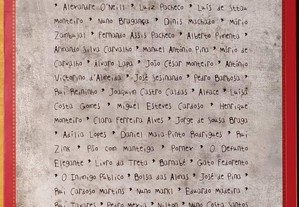 • Alexandre O'Neill • Luiz Pacheco • Luís de Sttau
Monteiro • Nuno Bragança • Dinis Machado • Mário
Zambujal • Fernando Assis Pacheco • Alberto Pimenta •
Armando Silva Carvalho • Manuel António Pina • Mário de
Carvalho • Álvaro Lapa • João César Monteiro • António
Victorino d'Almeida • José Sesinando • Pedro Barbosa •
Rui Reininho • Joaquim Castro Caldas • Alface • Luísa
Costa Gomes • Miguel Esteves Cardoso • Henrique
Monteiro • Clara Ferreira Alves • Jorge de Sousa Braga
• Adília Lopes • Daniel Maia-Pinto Rodrigues • Rui
Zink • Pão com Manteiga • Pornex • O Defunto
Elegante • Livro da Treta • Barnabé • Gato Fedorento
• O Inimigo Público • Bolsa das Almas • José de Pina
Rui Cardoso Martins • Nuno Markl • Eduardo Madeira
Rui Tavares • Pedro Mexia • Nilton • Nuno Costa Santos